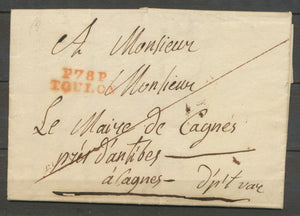 A Monsieur
P78P
TOULON
Monsieur
Le Maire de Cagnes
près d'antibes
à Cagnes Dp't var